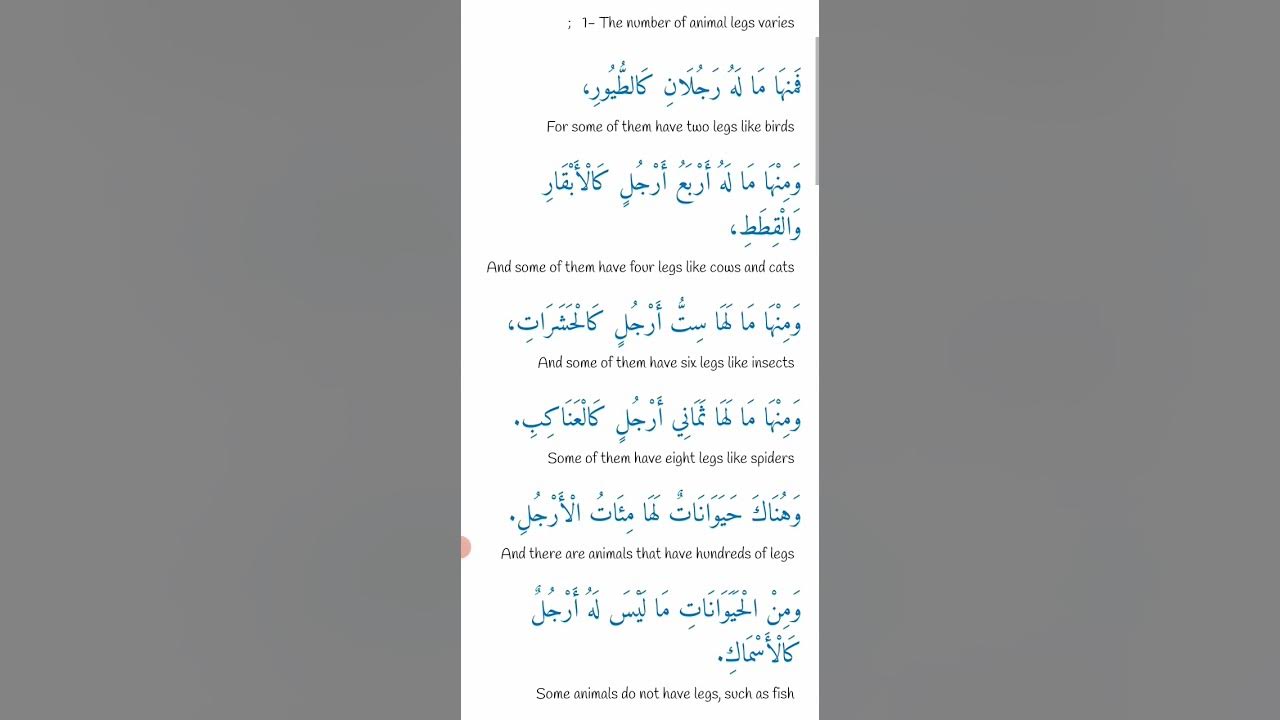 ; 1- The number of animal legs varies
فَمنهَا مَا لَهُ رَجُلَانِ كَالطُّيُورِ،
For some of them have two legs like birds
وَمِنْهَا مَا لَهُ أَرْبَعُ أَرْجُلٍ كَالْأَبْقَارِ
وَالْقِطَطِ،
And some of them have four legs like cows and cats
وَمِنْهَا مَا لَهَا سِتُّ أَرْجُلٍ كَالْحَشَرَاتِ،
And some of them have six legs like insects
وَمِنْهَا مَا لَهَا ثَمَانِي أَرْجُلٍ كَالْعَنَاكِبِ.
Some of them have eight legs like spiders
وَهُنَاكَ حَيَوَانَاتٌ لَهَا مِئَاتُ الْأَرْجُلِ.
And there are animals that have hundreds of legs
وَمِنْ الْحَيَوَانَاتِ مَا لَيْسَ لَهُ أَرْجُلٌ
كَالْأَسْمَاكِ.
Some animals do not have legs, such as fish